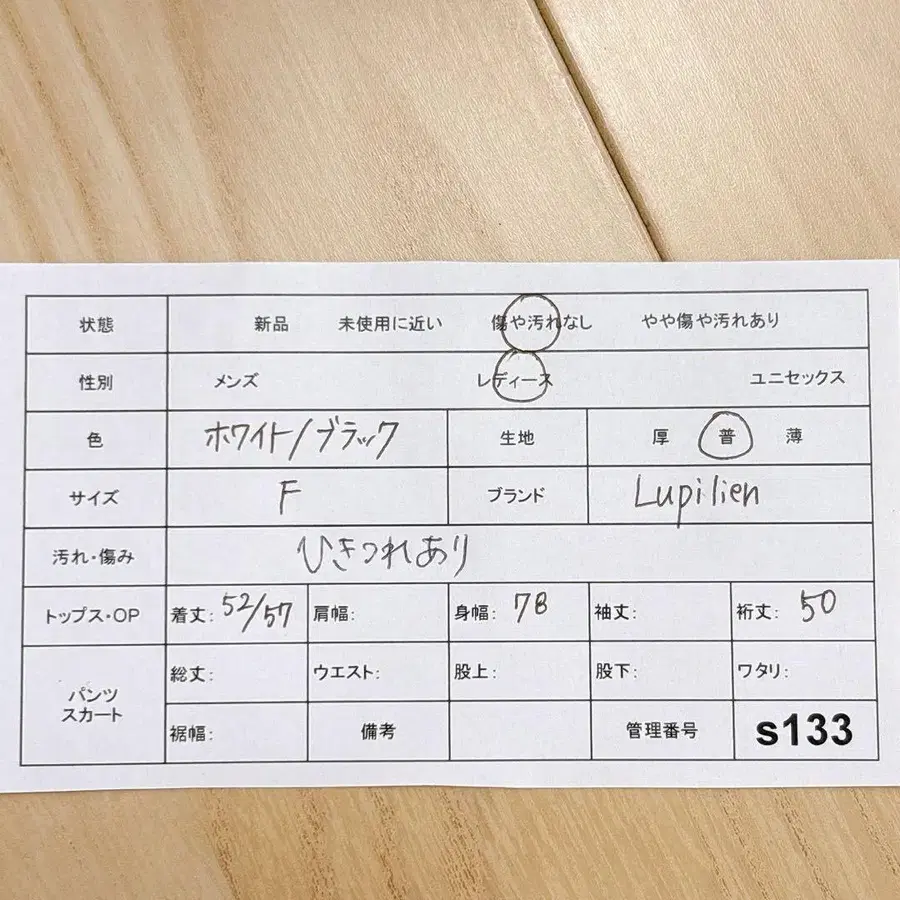 状態 新品 未使用に近い 傷や汚れなし やや傷や汚れあり
性別 メンズ レディース ユニセックス
色 ホワイト/ブラック 生地 厚 普 薄
サイズ F ブランド Lupilien
汚れ・傷み ひきつれあり
トップス・OP 着丈: 52/57 肩幅: 身幅: 78 袖丈: 裄丈: 50
パンツ スカート 総丈: ウエスト: 股上: 股下: ワタリ:
裾幅: 備考 管理番号 s133